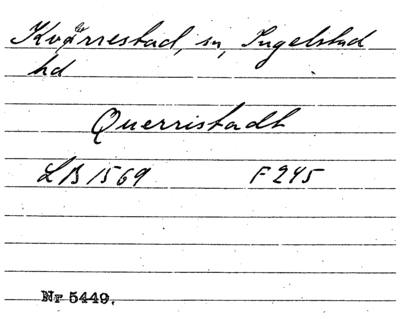 Kvärrestad, sn, Ingelstad
hd
Querristadt
LB 1569 F 245
Nr 5449.